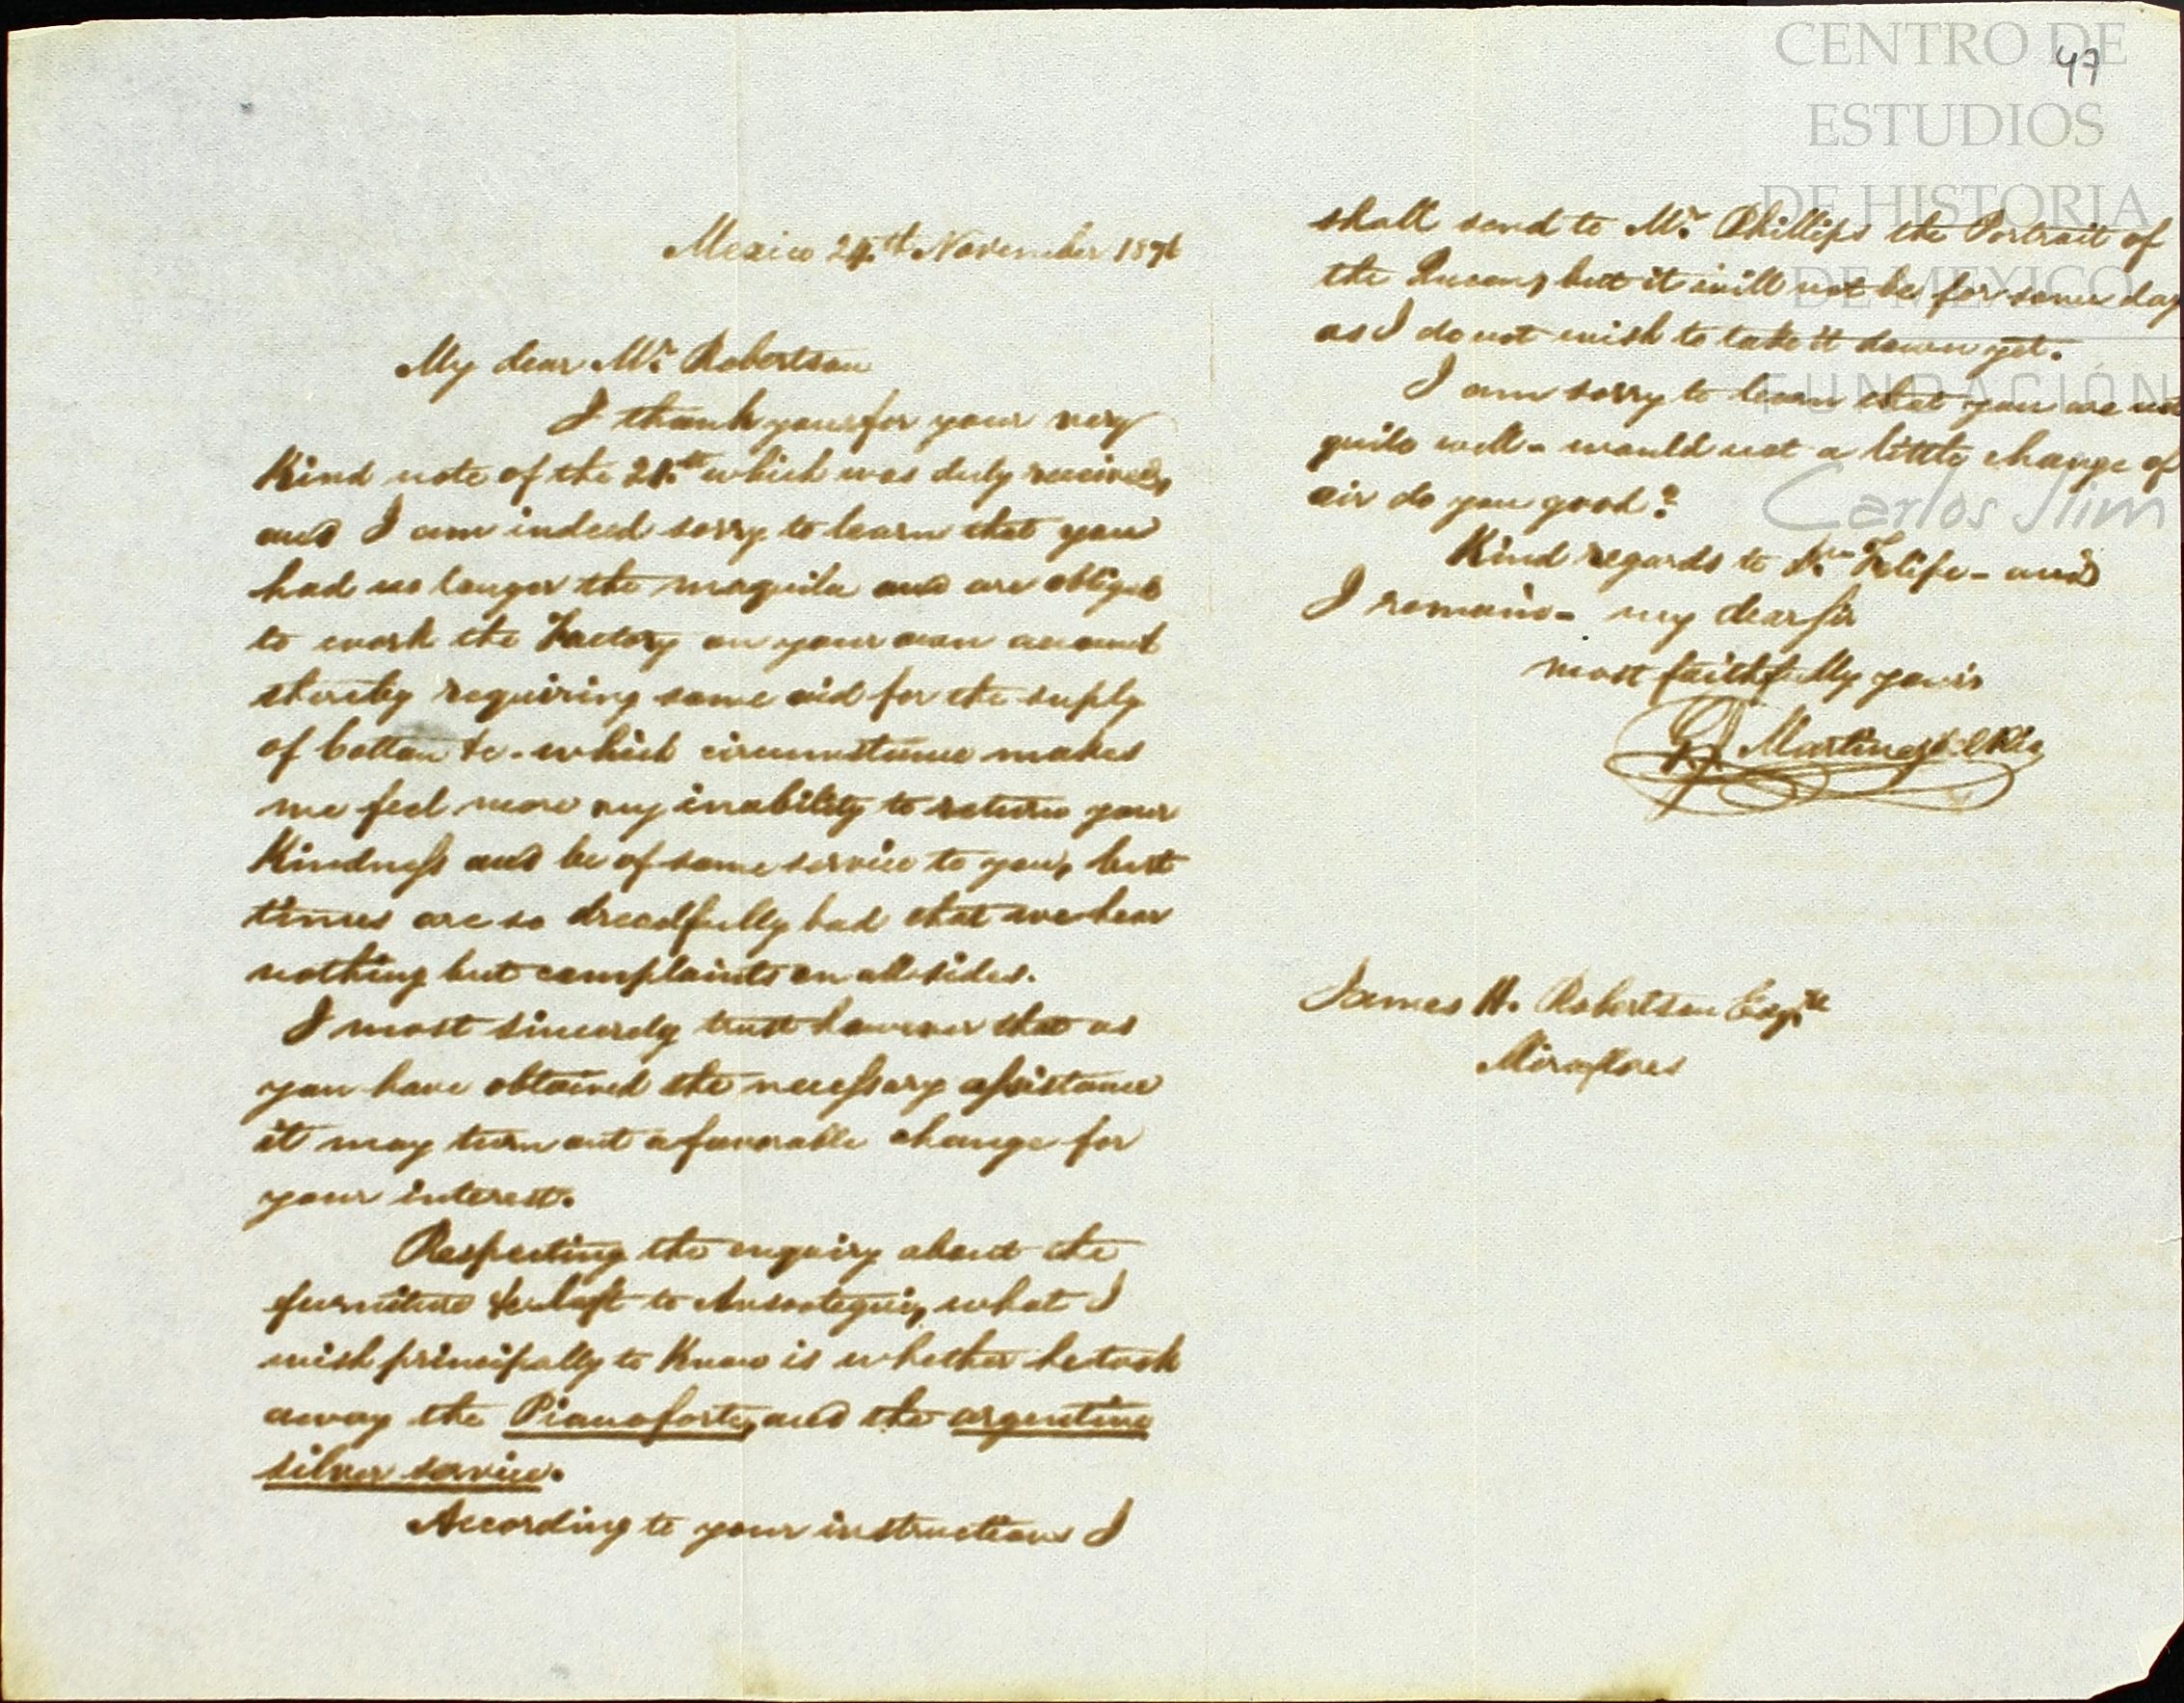 Mexico 24.th November 1876
My dear Mr. Robertson
I thank you for your very
Kind note of the 21.st which was duly received,
and I am indeed sorry to learn that you
had no longer the maquila and are obliged
to work the Factory on your own account
thereby requiring some aid for the suply
of Cotton &c. which circumstance makes
me feel more my inability to return your
Kindness and be of some service to you, but
times are so dreadfully bad that we hear
nothing but complaints on all sides.
I most sincerely trust however that as
you have obtained the necessary assistance
it may turn out a favorable change for
your interest.
Respecting the enquiry about the
furniture &c left to Ansoategui, what I
wish principally to Know is whether he took
away the Pianoforte, and the argentine
silver service.
According to your instructions I
47
shall send to Mr. Phillips the Portrait of
the Queen, but it will not be for some day
as I do not wish to take it down yet.
I am sorry to learn that you are not
quite well - would not a little change of
air do you good?
Kind regards to Dn. Felipe - and
I remain - my dear Sir
most faithfully yours
Martinez del Rio
James H. Robertson Esqre
Miraflores
CENTRO DE
ESTUDIOS
DE HISTORIA
DE MEXICO
FUNDACIÓN
Carlos Slim